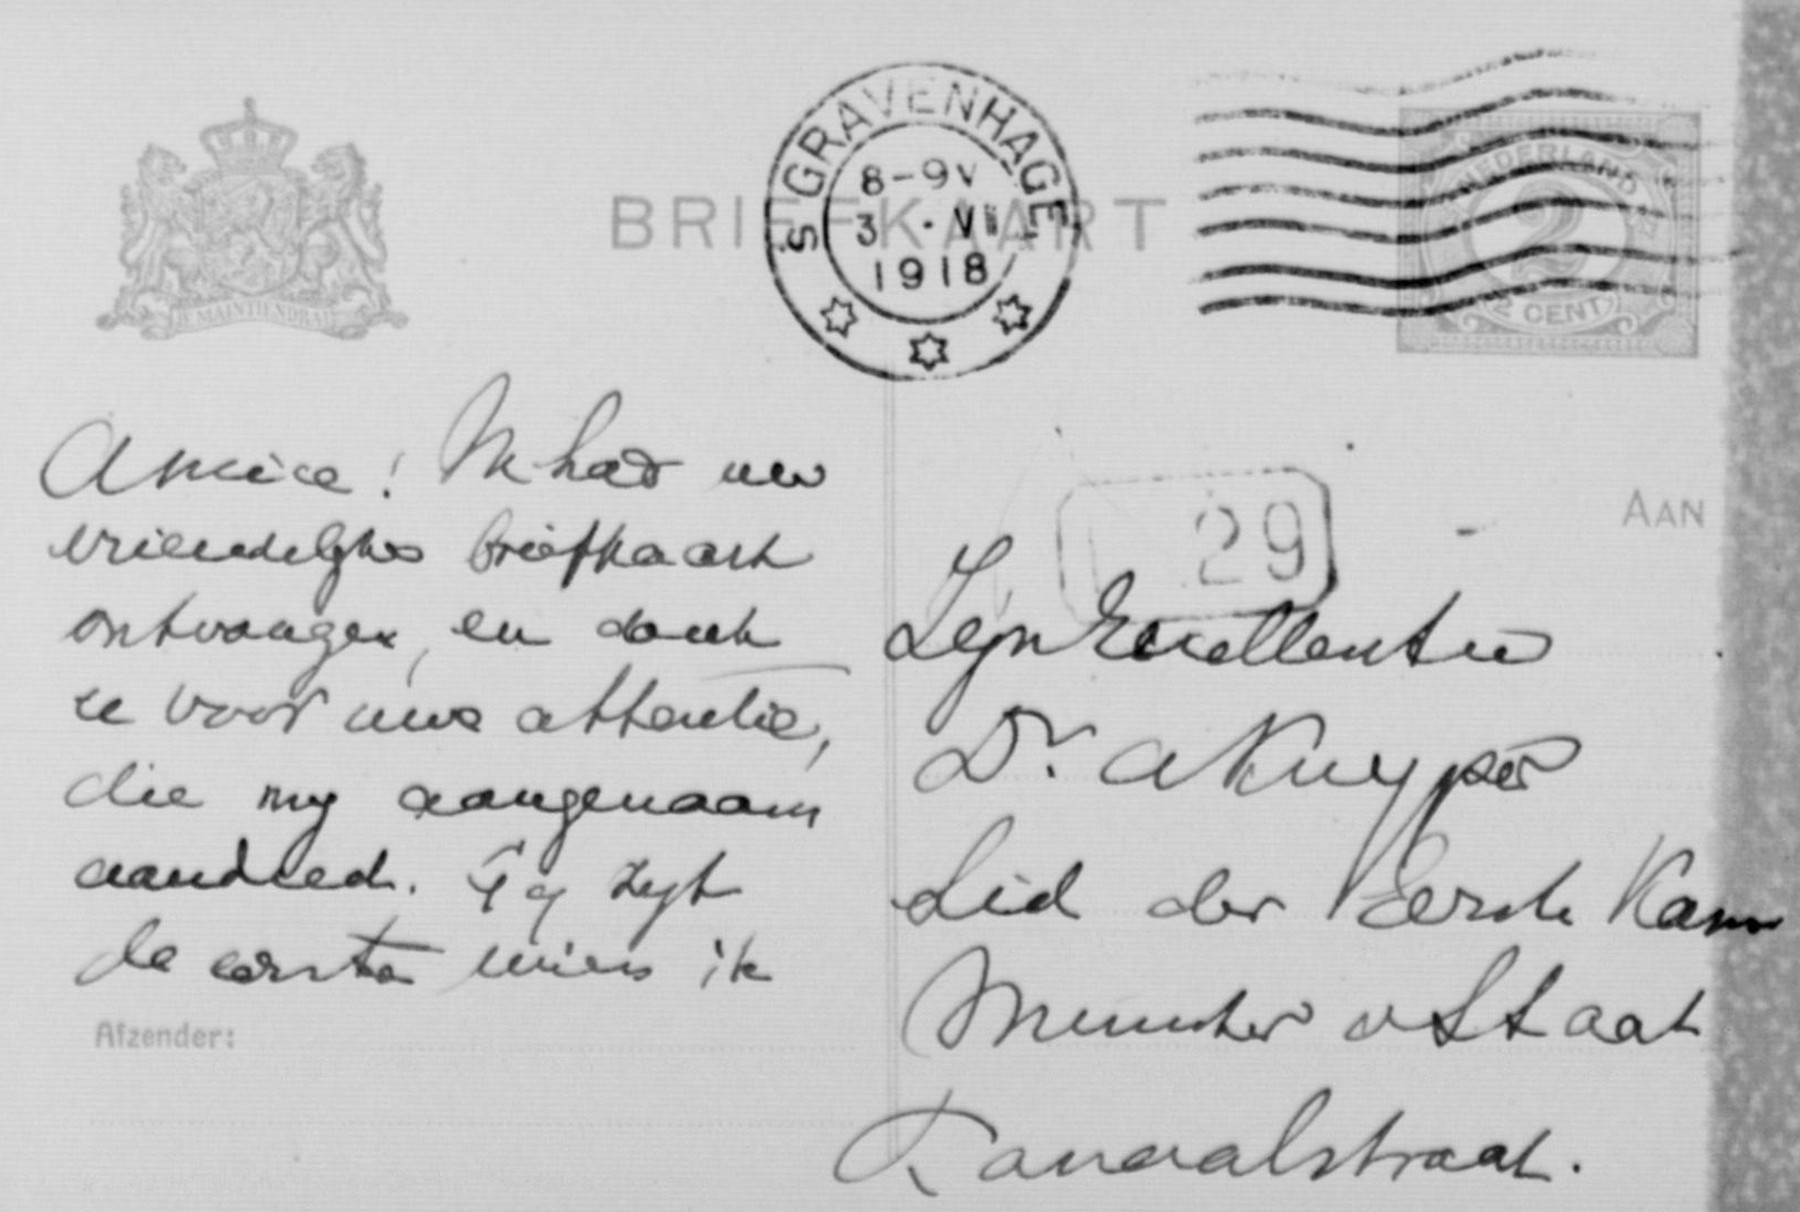 BRIEFKAART
'S GRAVENHAGE
8-9V
3 · VII
1918
NEDERLAND
2
2 CENT
JE MAINTIENDRAI
Amice! Ik had uw
vriendelyke briefkaart
ontvangen, en dank
u voor uwe attentie,
die my aangenaam
aandeed. Gy zyt
de eerste wien ik
Afzender:
29
AAN
Zyn Excellentie
Dr. A Kuyper
Lid der Eerste Kamer
Minister v Staat
Kanaalstraat.